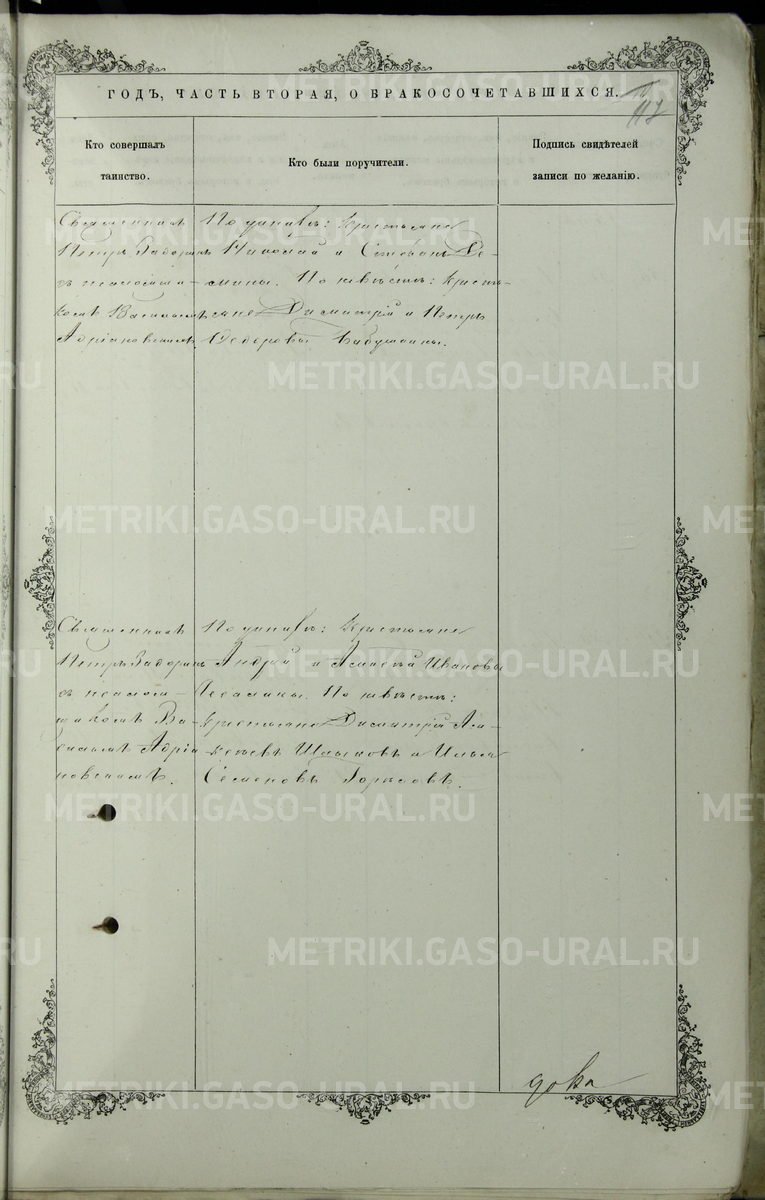 ГОДЪ, ЧАСТЬ ВТОРАЯ, О БРАКОСОЧЕТАВШИХСЯ.
117
Кто совершалъ
таинство.
Кто были поручители.
Подпись свидѣтелей
записи по желанію.
Священникъ
Петръ Задоринъ
съ псаломщи-
комъ Василіемъ
Адріановскимъ
По женихѣ: Крестьяне
Николай и Степанъ Се-
мины. По невѣстѣ: Кресть-
яне Димитрій и Петръ
Ѳедоровы Бабушкины.
Священникъ
Петръ Задоринъ
съ псалом-
щикомъ Ва-
силіемъ Адріа
новскимъ.
По женихѣ: Крестьяне
Андрей и Алексѣй Ивановы
По невѣстѣ:
Крестьяне Димитрій Але-
ксѣевъ и Илья
Семеновъ
METRIKI.GASO-URAL.RU